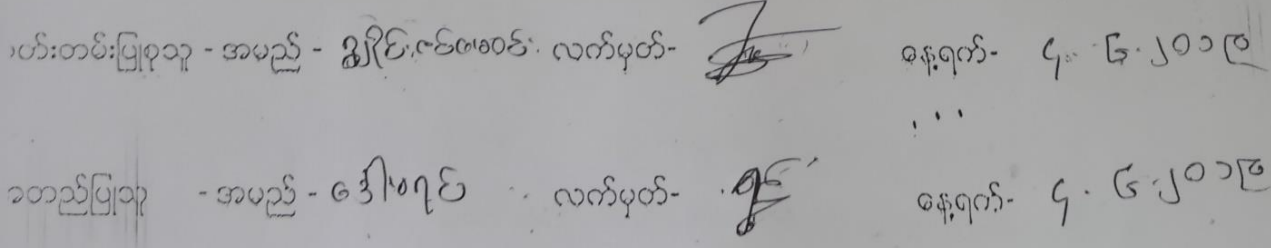 မှတ်တမ်းပြုစုသူ - အမည် - ချိုင်ဇင်ဖောင် လက်မှတ်- နေ့ရက်- ၄. ၆. ၂၀၁၉
အတည်ပြုသူ - အမည် - ဒေါ်မရင် လက်မှတ်- နေ့ရက်- ၄. ၆. ၂၀၁၉